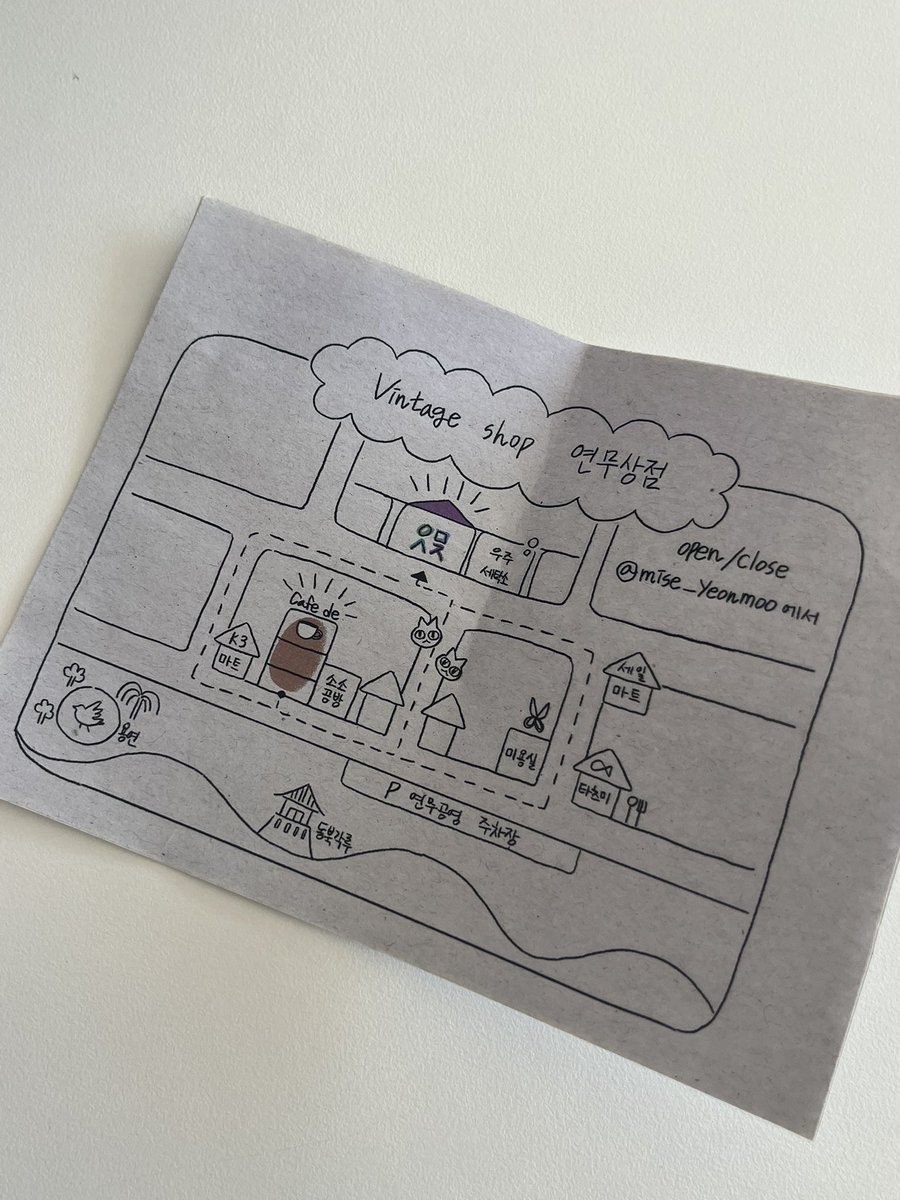 Vintage shop 연무상점
open/close
@mise_yeonmoo에서
우주
세탁소
Cafe de
K3
마트
소소
공방
세일
마트
미용실
타츠미
용연
P 연무공영 주차장
동북각루